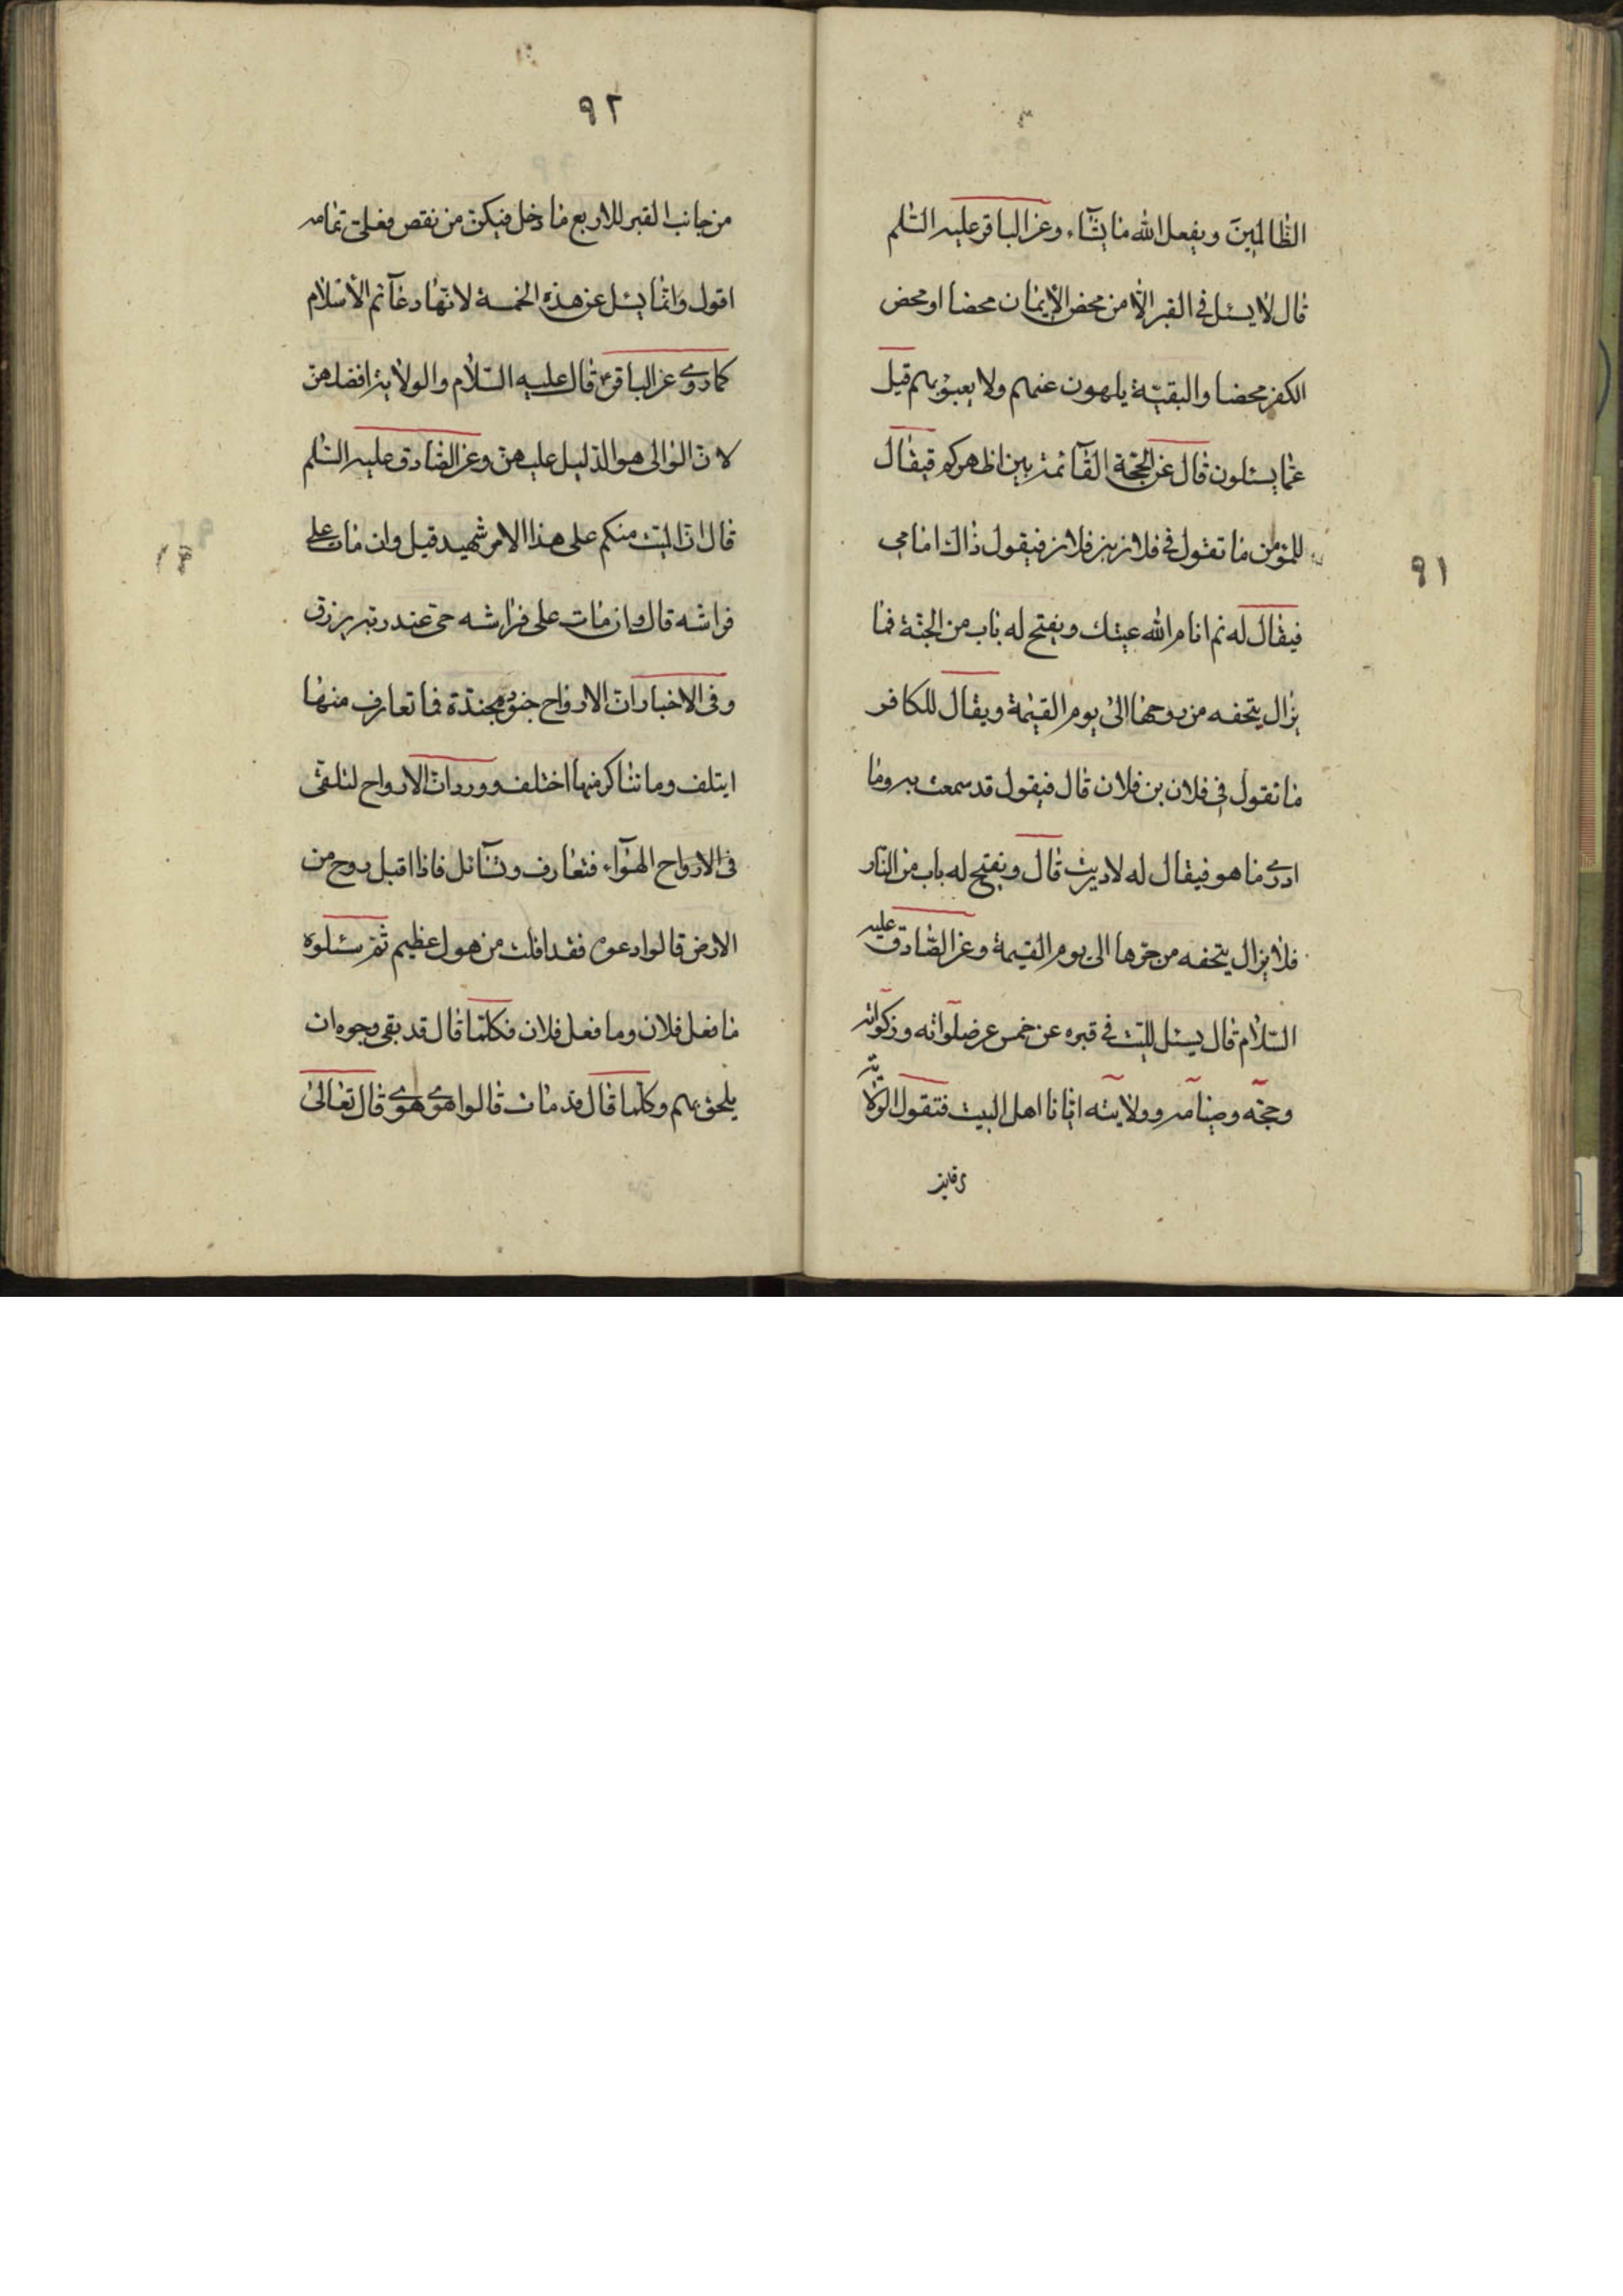 ٩١
الظّالمينَ ويفعل الله ما يشآء، وعن الباقر عليه السّلم
قال لا يسئل فى القبر الّا من محض الايمان محضا او محض
الكفر محضا والبقيّة يلهون عنهم ولا يعبؤ بهم قيل
عمّا يسئلون قال عن الحجّة القآئمة بين اظهركم فيقال
للمؤمن ما تقول فى فلان بن فلان فيقول ذاك امامى
فيقال له نم انام الله عينك ويفتح له باب من الجنّة فما
يزال يتحفه من روحها الى يوم القيمة ويقال للكافر
ما تقول فى فلان بن فلان قال فيقول قد سمعت به وما
ادرى ما هو فيقال له لا دريت قال ويفتح له باب من النّار
فلا يزال يتحفه من حرّها الى يوم القيمة وعن الصّادق عليه
السّلام قال يسئل الميّت فى قبره عن خمس عن صلواته وزكواته
وحجّه وصيامه وولايته ايّانا اهل البيت فتقول الولاية
٩٢
من جانب القبر للاربع ما دخل فيكنّ من نقص فعلىّ تمامه
اقول وانّما يسئل عن هذه الخمسة لانّها دعآئم الاسلام
كما روى عن الباقرؑ قال عليه السّلام والولاية افضلهنّ
لانّ الوالى هو الدّليل عليهنّ وعن الصّادق عليه السّلم
قال انّ الميّت منكم على هذا الامر شهيد قيل وان مات على
فراشه قال وان مات على فراشه حىّ عند ربّه يرزق
وفى الاخبار انّ الارواح جنود مجندّة فما تعارف منها
ايتلف وما تناكر منها اختلف وورد انّ الارواح لتلقى
فى الارواح الهوآء، فتعارف وتسآئل فاذا اقبل روح من
الارض قالوا دعوه فقد افلت من هول عظيم ثمّ سئلوه
ما فعل فلان وما فعل فلان فكلّما قال قد بقى رجوه ان
يلحق بهم وكلّما قال قد مات قالوا هوى هوى قال تعالى